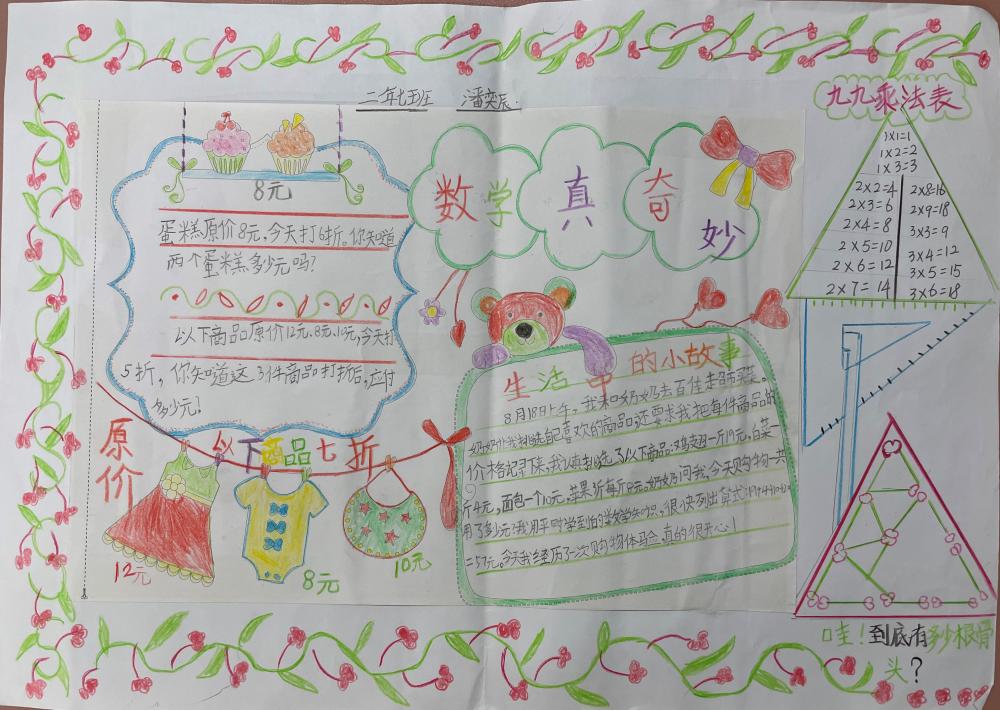 二年七班 潘奕辰
8元
蛋糕原价8元,今天打6折。你知道
两个蛋糕多少元吗?
以下商品原价12元、8元、10元,今天打
5折,你知道这3件商品打折后,应付
多少元?
原价
以下商品七折
12元
8元
10元
数学真奇妙
生活中的小故事
8月18日上午,我和奶奶去百佳超市买菜。
奶奶让我挑选自己喜欢的商品,还要求我把每件商品的
价格记下来,我认真挑选了以下商品:鸡支翅一斤19元,白菜一
斤4元,面包一个10元,苹果3斤每斤8元。奶奶问我,今天购物一共
用了多少元?我用平时学到的数学知识,很快列出算式
=57元。今天我经历了一次购物体验,真的很开心!
九九乘法表
1×1=1
1×2=2
1×3=3
2×2=4
2×3=6
2×4=8
2×5=10
2×6=12
2×7=14
2×8=16
2×9=18
3×3=9
3×4=12
3×5=15
3×6=18
哇!到底有多少根骨
头?